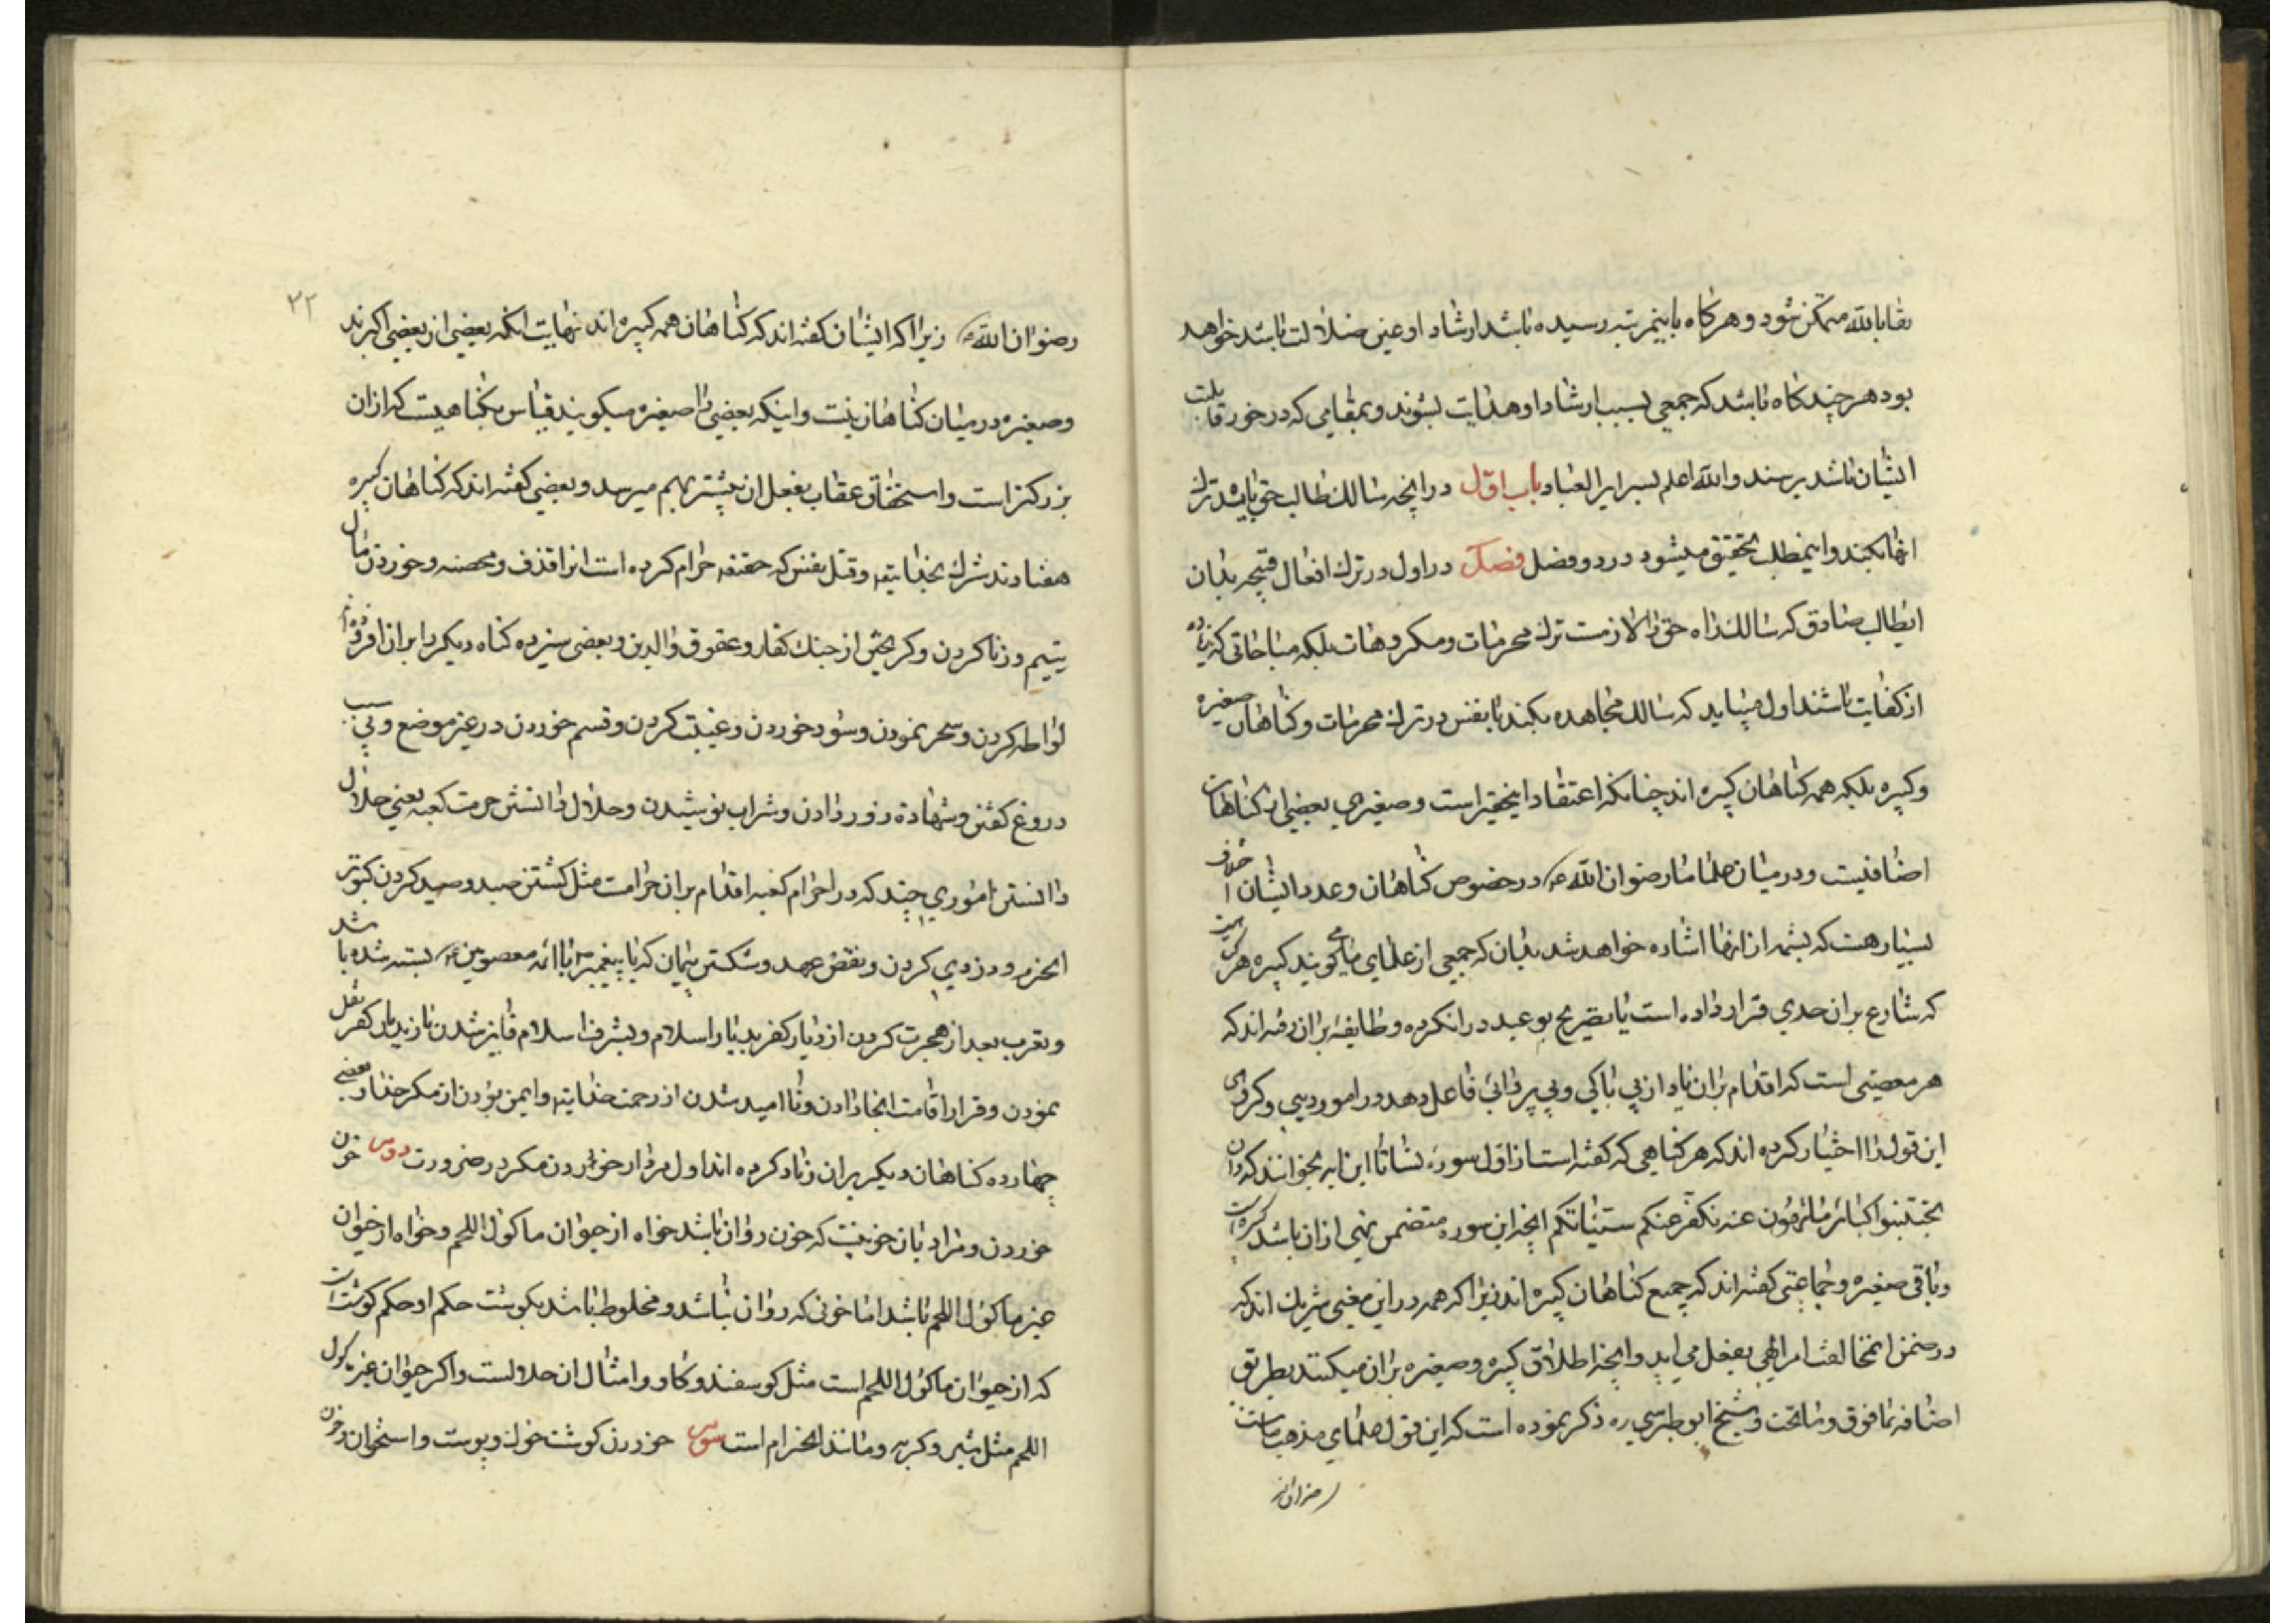 بقا بالله متمکن شود و هرکاه باینمرتبه رسیده باشد ارشاد او عین ضلالت باشد خواهد
بود هرچند کاه باشد که جمعی بسبب ارشاد او هدایت بشوند و بمقامی که در خور قابلیت
ایشان باشد برسند والله اعلم بسرایر العباد باب اول در انچه سالک طالب حق باید ترک
انها بکند و اینمطلب تحقیق میشود در دو فصل فصل اول در ترک افعال قبیحه بدان
ایطالب صادق که سالک راه حق را لازمست ترک محرمات و مکروهات بلکه مباحاتی که زیاده
از کفایت باشند اول میباید که سالک مجاهده بکند با نفس در ترک محرمات و کناهان صغیره
و کبیره بلکه همه کناهان کبیره اند چنانکه اعتقاد اینحقیر است و صغیری بعضی از کناهان
اضافیست و در میان علما ما رضوان الله در خصوص کناهان و عدد ایشان اختلاف
بسیار هست که بشمه از انها اشاره خواهد شد بدان که جمعی از علمای ما می کویند کبیره هر
که شارع بران حدی قرار داده است یا تصریح بوعید در ان کرده و طایفه بران رفته اند که
هر معصیتی است که اقدام بران یاد از بی باکی و بی پروائی فاعل دهد در امور دینی و کروهی
این قول را اختیار کرده اند که هر کناهی که کفته است از اول سوره نسا تا این ایه بخوانند که ان
تجتنبوا کبائر ما تنهون عنه نکفر عنکم سیئاتکم انچه این سوره متضمن نهی از ان باشد کبیره است
و باقی صغیره و جماعتی کفته اند که جمیع کناهان کبیره اند زیرا که همه در این معنی شریک اند که
در ضمن ان مخالفت امر الهی بفعل می اید و انچه اطلاق کبیره و صغیره بران میکنند بطریق
اضافه بما فوق و ما تحت و شیخ ابو طبرسی ره ذکر نموده است که این قول علمای مذهب ماست
رضوان الله
۳۲
رضوان الله زیرا که ایشان کفته اند که کناهان همه کبیره اند نهایت انکه بعضی از بعضی اکبرند
و صغیره در میان کناهان نیست و اینکه بعضی را صغیره میکویند بقیاس بکناهیست که از ان
بزرکتر است و استحقاق عقاب بفعل ان بیشتر بهم میرسد و بعضی کفته اند که کناهان کبیره
هفتادند شرک بخدایتع و قتل نفس که حقتع حرام کرده است انرا قذف و محصنه و خوردن مال
یتیم و زنا کردن و کریختن از جنک کفار و عقوق والدین و بعضی سیزده کناه دیکر را بران افزوده اند
لواطه کردن و سحر نمودن و سود خوردن و غیبت کردن و قسم خوردن در غیر موضع و بی سبب
دروغ کفتن و شهادة زور دادن و شراب نوشیدن و حلال دانستن حرمت کعبه یعنی حلال
دانستن اموری چند که در احرام کعبه اقدام بران حرامست مثل کشتن صید و صید کردن کبوتر
الحرم و دزدی کردن و نقض عهد و شکستن پیمان که با پیغمبر یا با ائمه معصومین بسته شده باشد
و تعرب بعد از هجرت کردن از دیار کفر بدیار اسلام و بشرف اسلام فایز شدن باز بدیار کفر نقل
نمودن و قرار اقامت انجا دادن و نا امید شدن از رحمت خدایتع و ایمن بودن از مکر خدا و بعضی
چهارده کناهان دیکر بران زیاد کرده اند اول مردار خوردن مکر در ضرورت دوم خون
خوردن و مراد بان خونیست که خون روان باشد خواه از حیوان ماکول اللحم و خواه از حیوان
غیر ماکول اللحم باشد اما خونی که روان نباشد و مخلوط باشد بکوشت حکم او حکم کوشت است
که از حیوان ماکول اللحم است مثل کوسفند و کاو و امثال ان حلالست و اکر حیوان غیر ماکول
اللحم مثل شیر و کربه و مانند ان حرام است سوم خوردن کوشت خوک و پوست و استخوان و خون